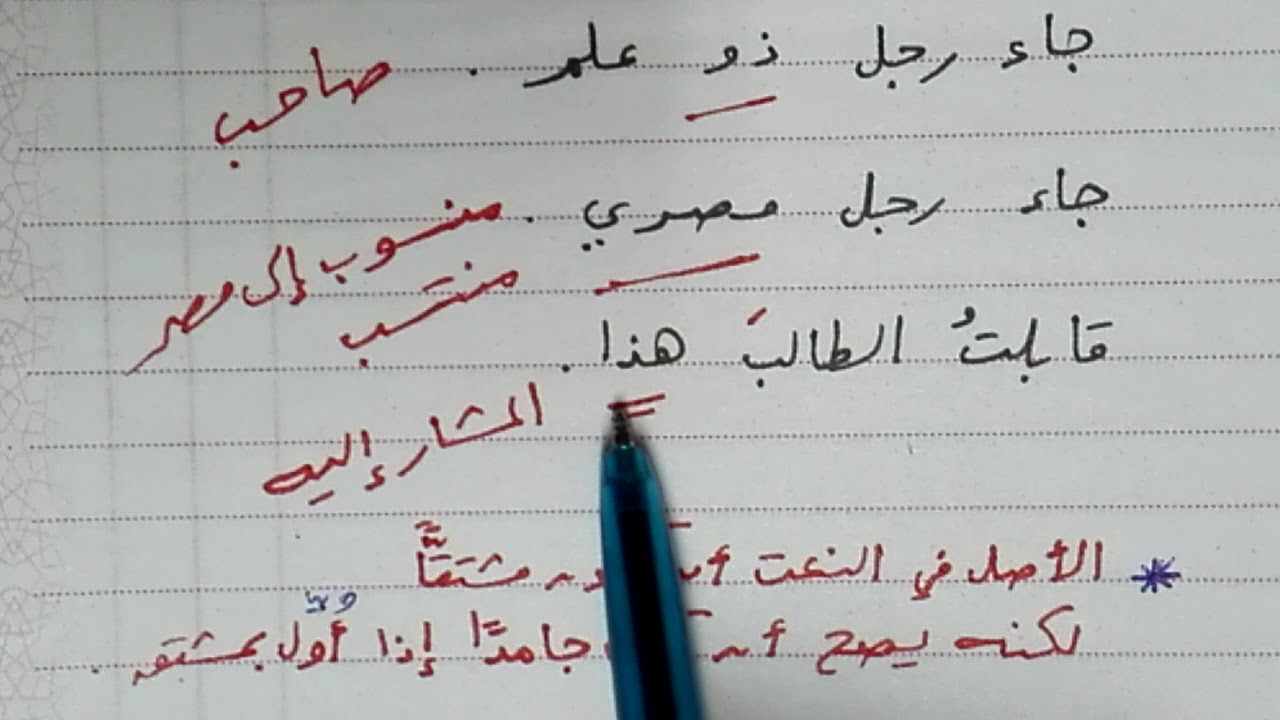 جاء رجل ذو علم . صاحب
جاء رجل مصري . منسوب إلى مصر
منتسب
قابلتُ الطالبَ هذا .
المشار إليه
* الأصل في النعت مشتقًّا
لكنه يصح جامدًا إذا أُوّل بمشتق .